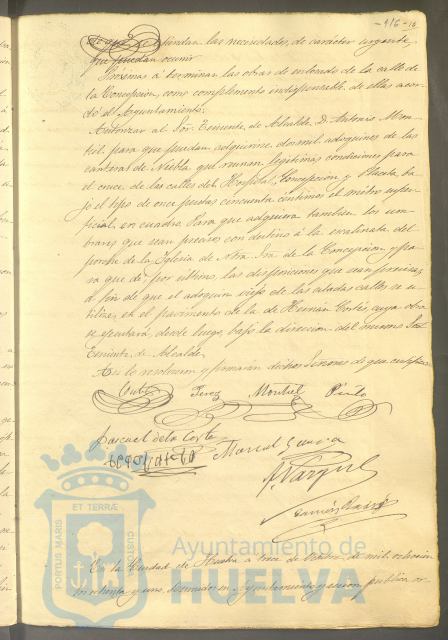 -916- 10
de que se atiendan las necesidades, de carácter urgente
que puedan ocurrir
Próximas á terminar las obras de enlosado de la calle de
la Concepcion, como complemento indispensable de ellas acor-
dó el Ayuntamiento:
Autorizar al Sor. Teniente de Alcalde D. Antonio Mon-
tiel para que puedan adquirirse dos mil adoquines de las
canteras de Niebla que reunan legitimas condiciones para
el cruce de las calles del Hospital, Concepcion y Placeta ba-
jo el tipo de once pesetas cincuenta centimos el metro super-
ficial, en cuadro. Para que adquiera tambien los um-
brales que sean precisos con destino á la escalinata del
porche de la Iglesia de Ntra. Sra. de la Concepcion y pa-
ra que dé, por último, las disposiciones que sean precisas
á fin de que el adoquin viejo de las citadas calles se u-
tilize, en el pavimento de la de Hernán Cortés, cuya obra
se ejecutará, desde luego, bajo la direccion del mismo Sor.
Teniente de Alcalde.
Asi lo resolvieron y firmarán dichos Señores de que certifico
Perez Montiel
Pascual de la Corte Manuel Guerra
A. Vazquez
PORTUS MARIS ET TERRÆ CUSTODIA
Ayuntamiento de
HUELVA
En la Ciudad de Huelva á trece de de mil ochocien-
tos ochenta y uno, Ayuntamiento y sesion publica